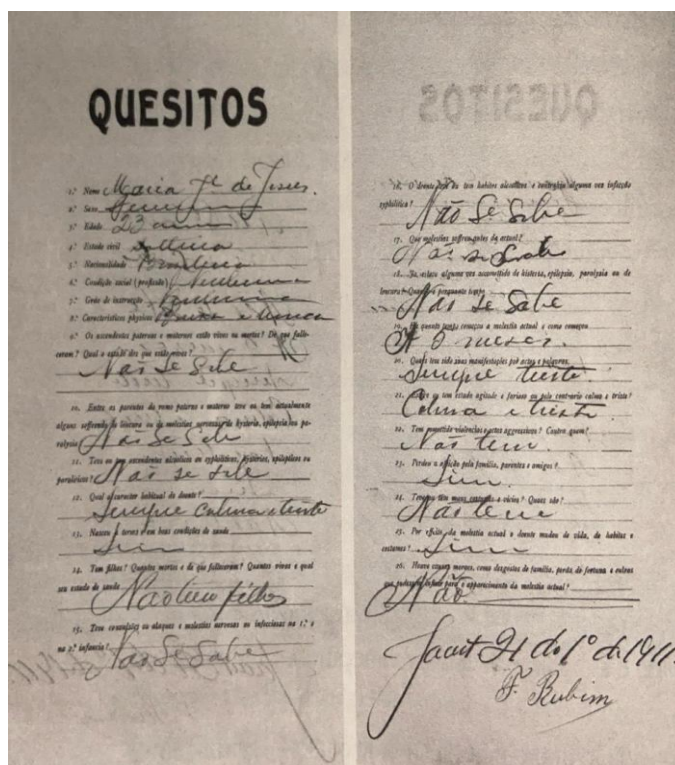 QUESITOS
1.º Nome Maria Fl. de Jesus.
2.º Sexo
3.º Edade 23 annos
4.º Estado civil
5.º Nacionalidade Brasileira
6.º Condição social (profissão) Nenhuma
7.º Gráo de instrucção Nenhuma
8.º Caracteristicos physicos Baixa e
9.º Os ascendentes paternos e maternos estão vivos ou mortos? De que falle-
ceram? Qual o estado dos que estão vivos?
Não Se Sabe
10. Entre os parentes do ramo paterno e materno teve ou tem actualmente
alguns soffrendo de loucura ou de molestias nervosas de hysteria, epilepsia ou pa-
ralysia? Não Se Sabe
11. Teve ou tem ascendentes alcoolicos ou syphiliticos, hystericos, epilepticos ou
paralyticos? Não se sabe
12. Qual o caracter habitual do doente?
Sempre calma e triste
13. Nasceu a termo e em boas condições de saude
Sim
14. Tem filhos? Quantos mortos e de que falleceram? Quantos vivos e qual
seu estado de saude Não tem filhos
15. Teve convulsões ou ataques e molestias nervosas ou infecciosas na 1.ª e
na 2.ª infancia? Não Se Sabe
16. O doente teve ou tem habitos alcoolicos e contrahio alguma vez infecção
syphilitica?
Não Se Sabe
17. Que molestias soffreu antes da actual?
Não se Sabe
18. Ja esteve alguma vez accomettido de histeria, epilepsia, paralysia ou de
loucura? Quando e porquanto tempo
Não Se Sabe
19. Ha quanto tempo começou a molestia actual e como começou
mezes.
20. Quaes tem sido suas manifestações por actos e palavras.
Sempre triste.
21. Esteve ou tem estado agitado e furioso ou pelo contrario calmo e triste?
Calma e triste.
22. Tem commettido violencias e actos aggressivos? Contra quem?
Não tem.
23. Perdeu a affeição pela familia, parentes e amigos?
Sim.
24. Teve ou tem maus costumes e vicios? Quaes são?
Não teve
25. Por effeito da molestia actual o doente mudou de vida, de habitos e
costumes? Sim
26. Houve causas moraes, como desgostos de familia, perda de fortuna e outras
que pudessem influir para o apparecimento da molestia actual?
Não
21 do 1º de 1911.
F. Rubim